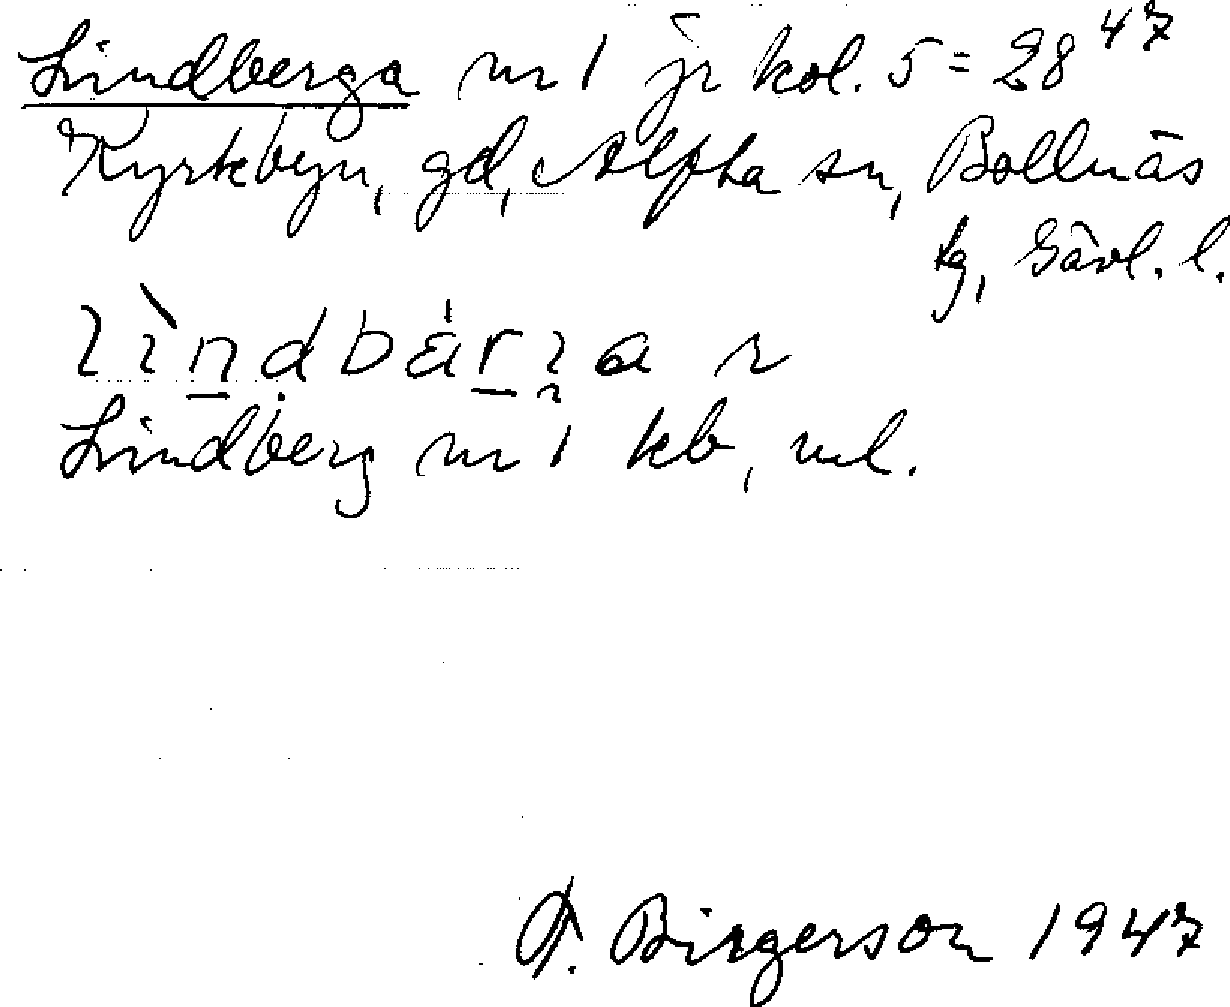 Lindberga nr 1 jr kol. 5 = 28 47
Kyrkbyn, gd, Alfta sn, Bollnäs
tg, Gävl. l.
Lindberg nr 1 kb, ml.
Birgerson 1947